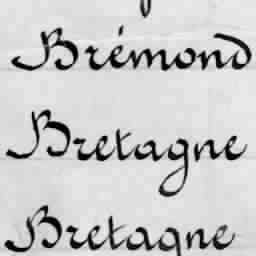 Brémond
Bretagne
Bretagne